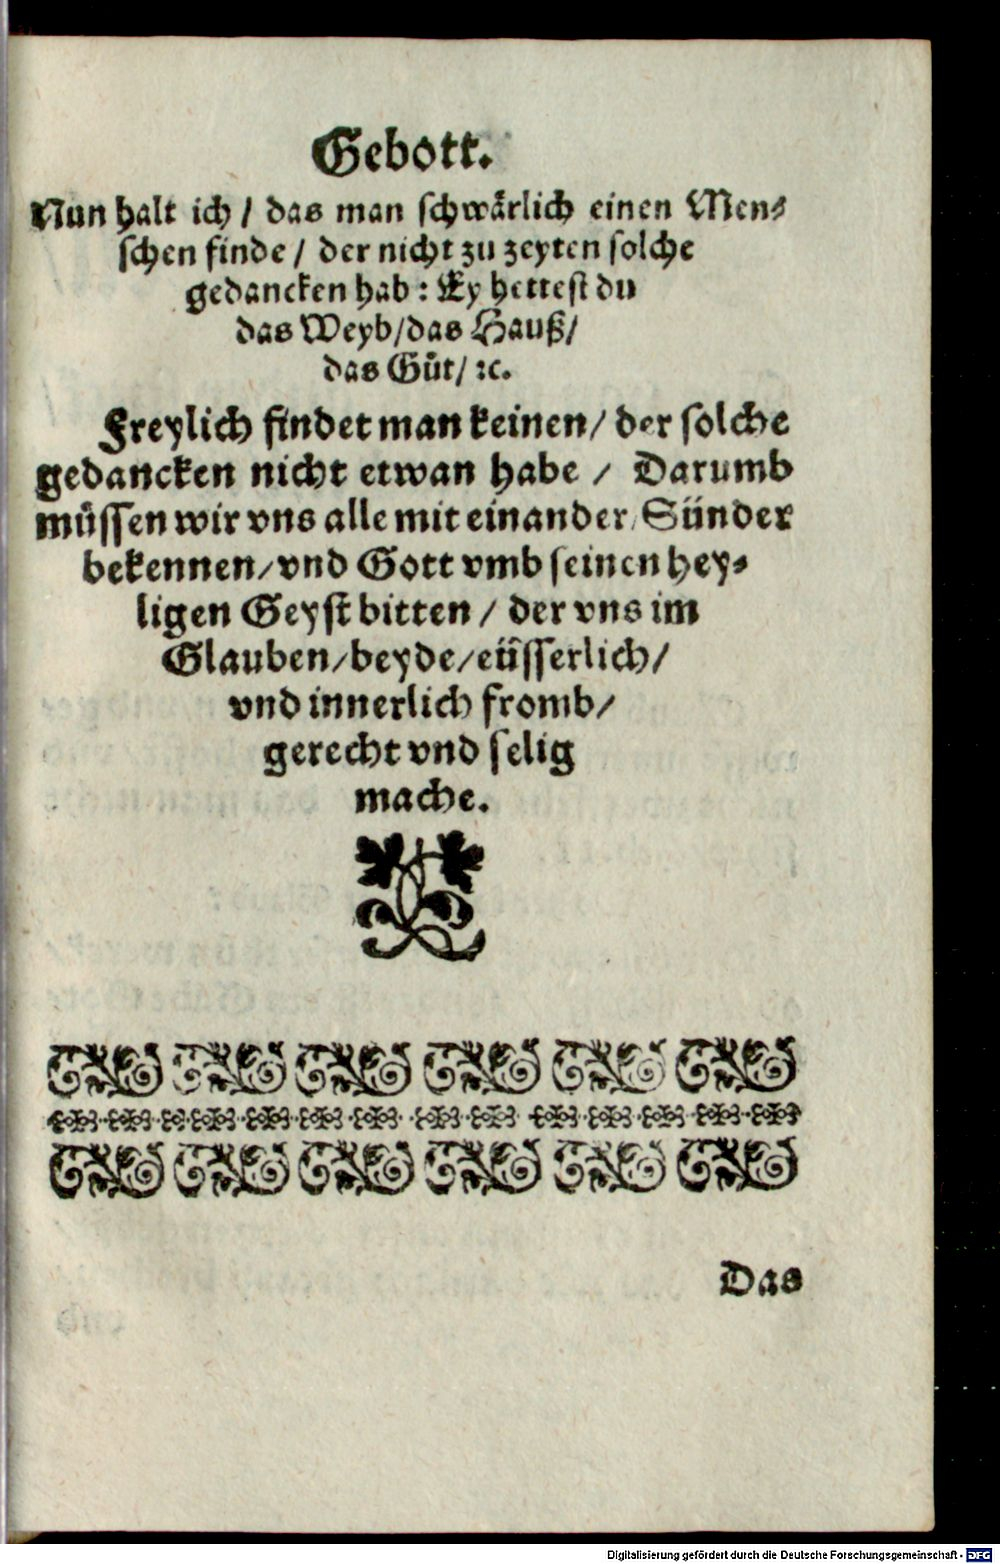 Gebott.
Nun halt ich / das man schwårlich einen Men⸗
schen finde / der nicht zu zeyten solche
gedancken hab : Ey hettest du
das Weyb/das Hauß/
das Gůt/ ꝛc.
Freylich findet man keinen/ der solche
gedancken nicht etwan habe / Darumb
müssen wir vns alle mit einander/ Sünder
bekennen/vnd Gott vmb seinen hey⸗
ligen Geyst bitten / der vns im
Glauben/beyde/eüsserlich/
vnd innerlich fromb/
gerecht vnd selig
mache.
Das
Digitalisierung gefördert durch die Deutsche Forschungsgemeinschaft - DFG